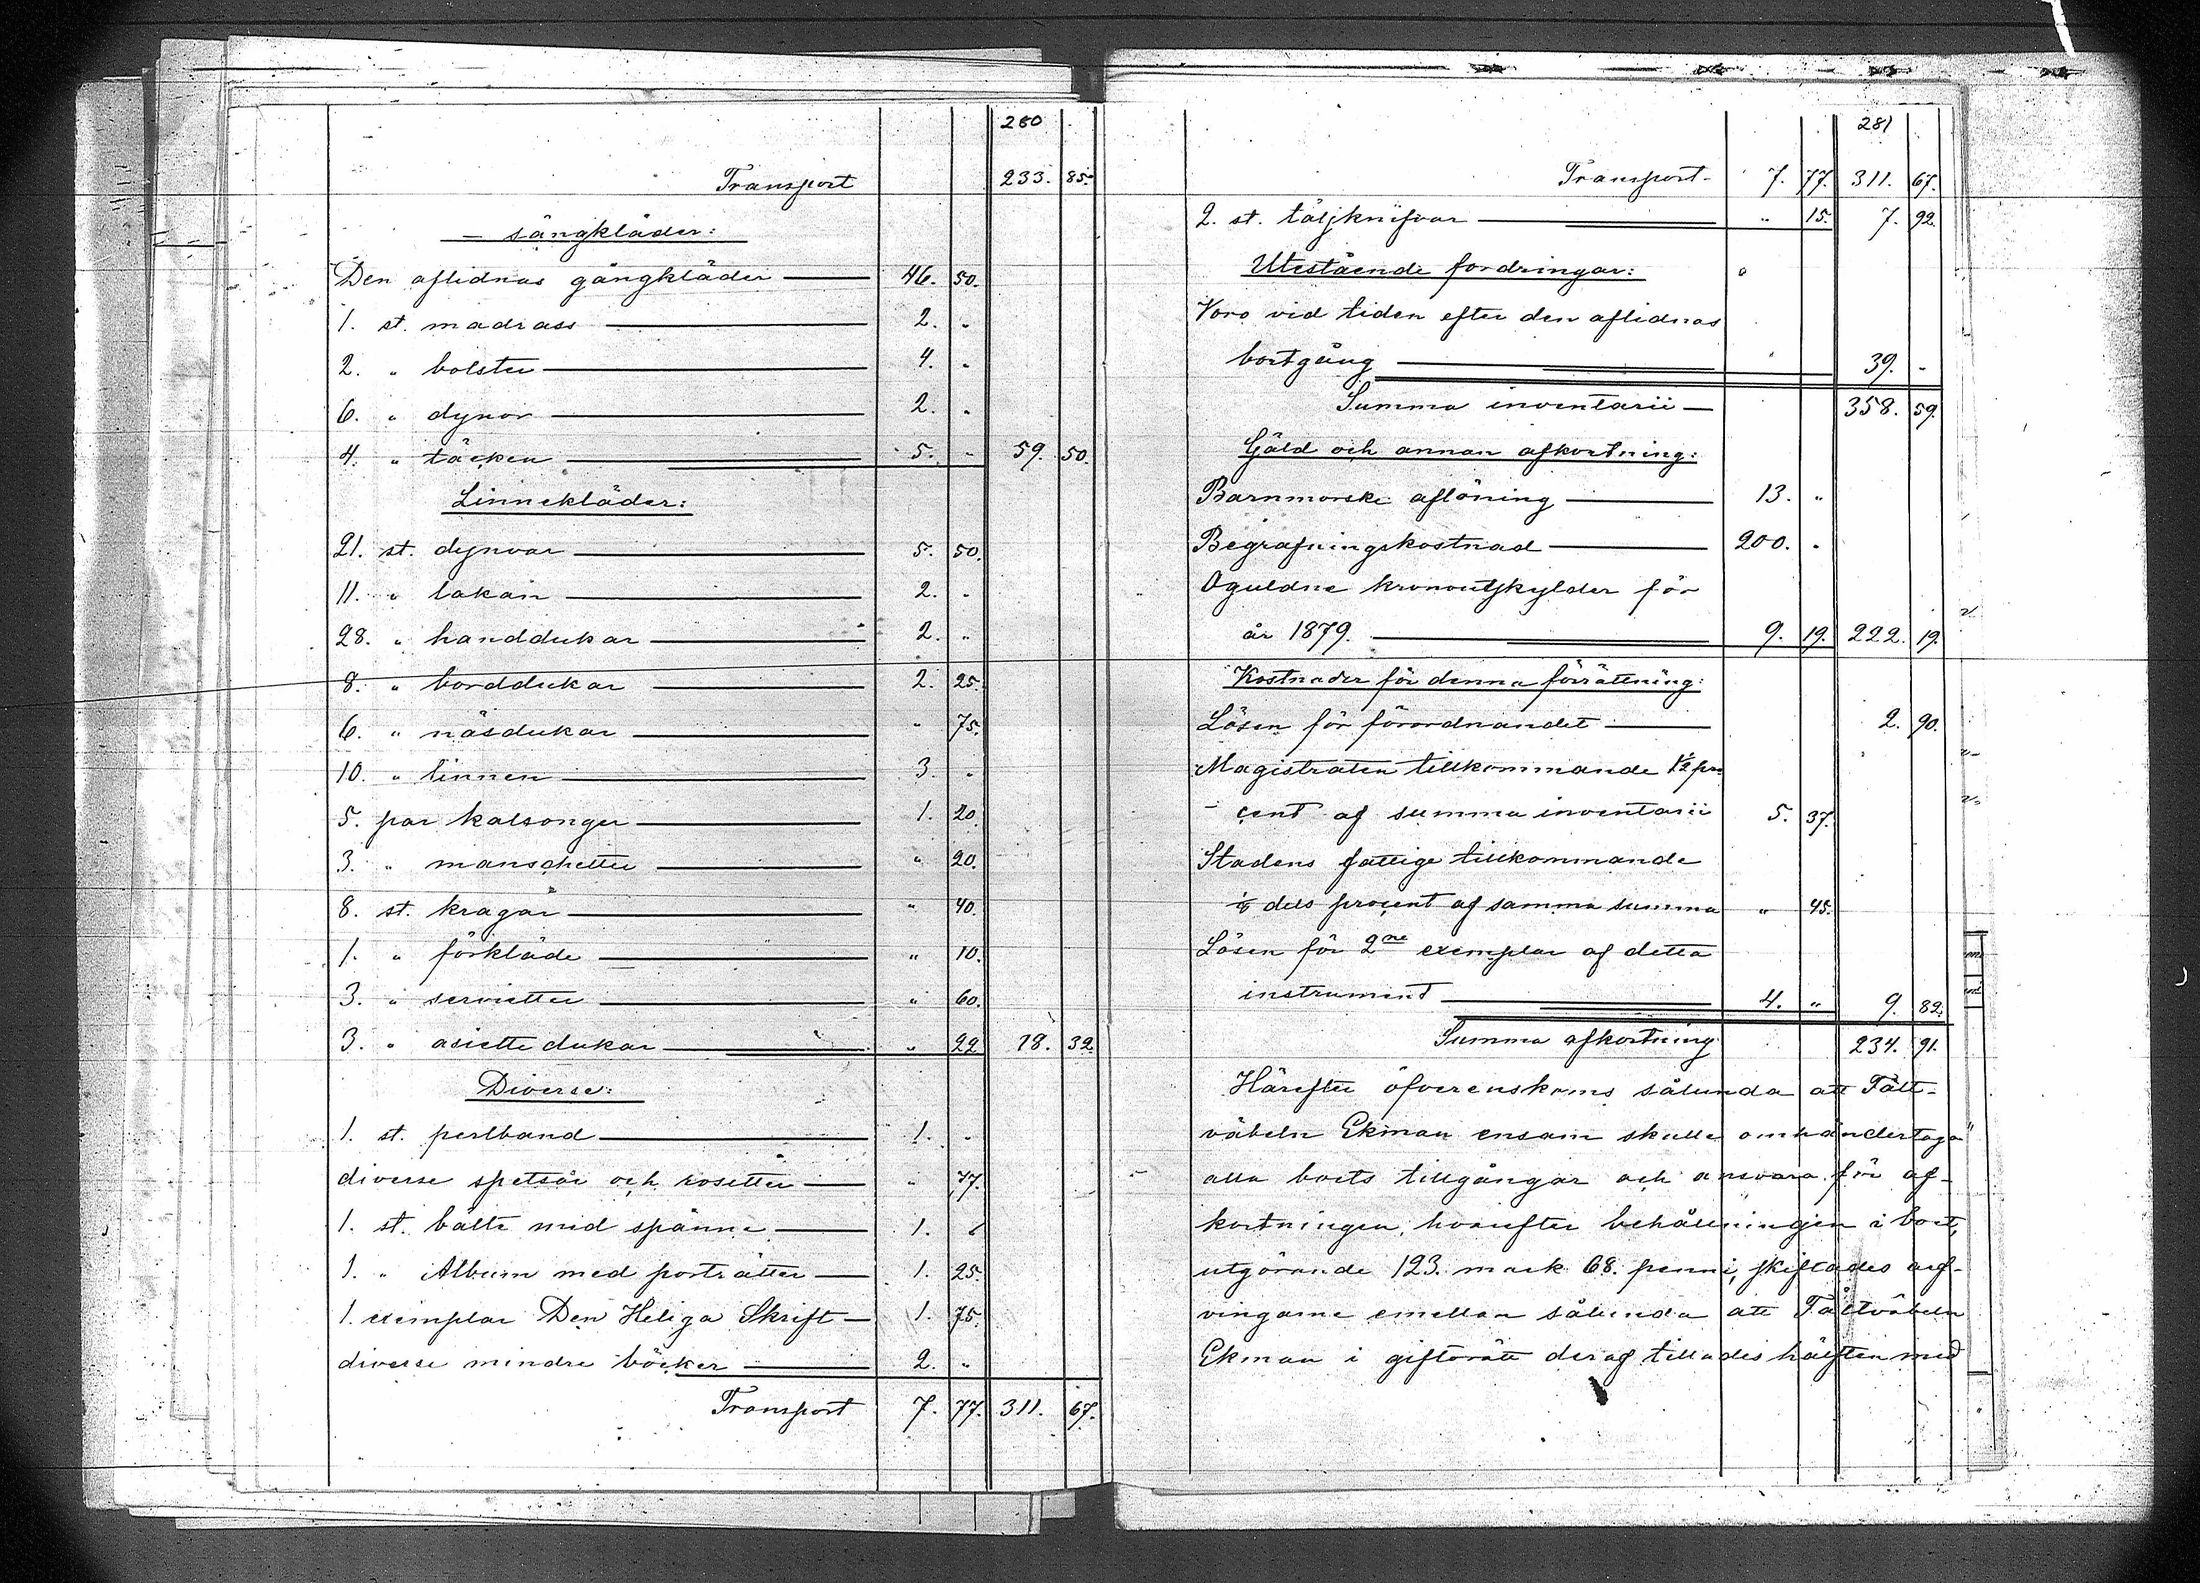 280
Transport 233. 85.
- sängkläder:
Den aflidnas gångkläder 46. 50.
1. st. madrass 2. "
2. " bolster 4. "
6. " dynor 2. "
4. " täcken 5. " 59. 50.
Linnekläder:
21. st. dynvar 5. 50.
11. " lakan 2. "
28. " handdukar 2. "
8. " borddukar 2. 25.
6. " näsdukar " 75.
10. " linnen 3. "
5. par kalsonger 1. 20.
3. " manschetter " 20.
8. st. kragar " 40.
1. " förkläde " 10.
3. " servietter " 60.
3. " asiette dukar " 22 18. 32.
Diverse:
1. st. perlband 1. "
diverse spetsar och rosetter " 77.
1. st. bälte med spänne 1. "
1. " Album med porträtter 1. 25.
1. exemplar Den Heliga Skrift 1. 75.
diverse mindre böcker 2. "
Transport 7. 77. 311. 67.
281
Transport 7. 77. 311. 67.
2. st. täljknifvar " 15. 7. 92.
Utestående fordringar:
Voro vid tiden efter den aflidnas
bortgång 39. "
Summa inventarii 358. 59.
Gäld och annan afkortning:
Barnmorske aflöning 13. "
Begrafningskostnad 200. "
Oguldne kronoutskylder för
år 1879. 9. 19. 222. 19.
Kostnader för denna förrättning:
Lösen för förordnandet 2. 90.
Magistraten tillkommande 1½ pro
- cent af summa inventarii 5. 37.
Stadens fattige tillkommande
⅛ dels procent af samma summa " 45.
Lösen för 2ne exemplar af detta
instrument 4. " 9. 82.
Summa afkortning 234. 91.
Härefter öfverenskoms sålunda att Fält-
väbeln Ekman ensam skulle omhändertaga
alla boets tillgångar och ansvara för af-
kortningen, hvarefter behållningen i boet,
utgörande 123. mark 68. penni, skiftades arf-
vingarne emellan sålunda att Fältväbeln
Ekman i giftorätt deraf tillades hälften med